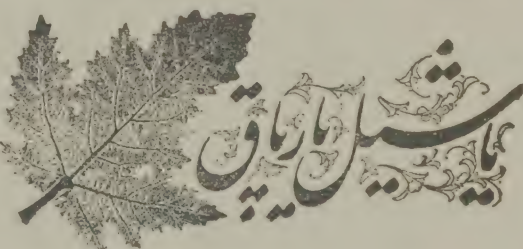 یاشیل یارپاق